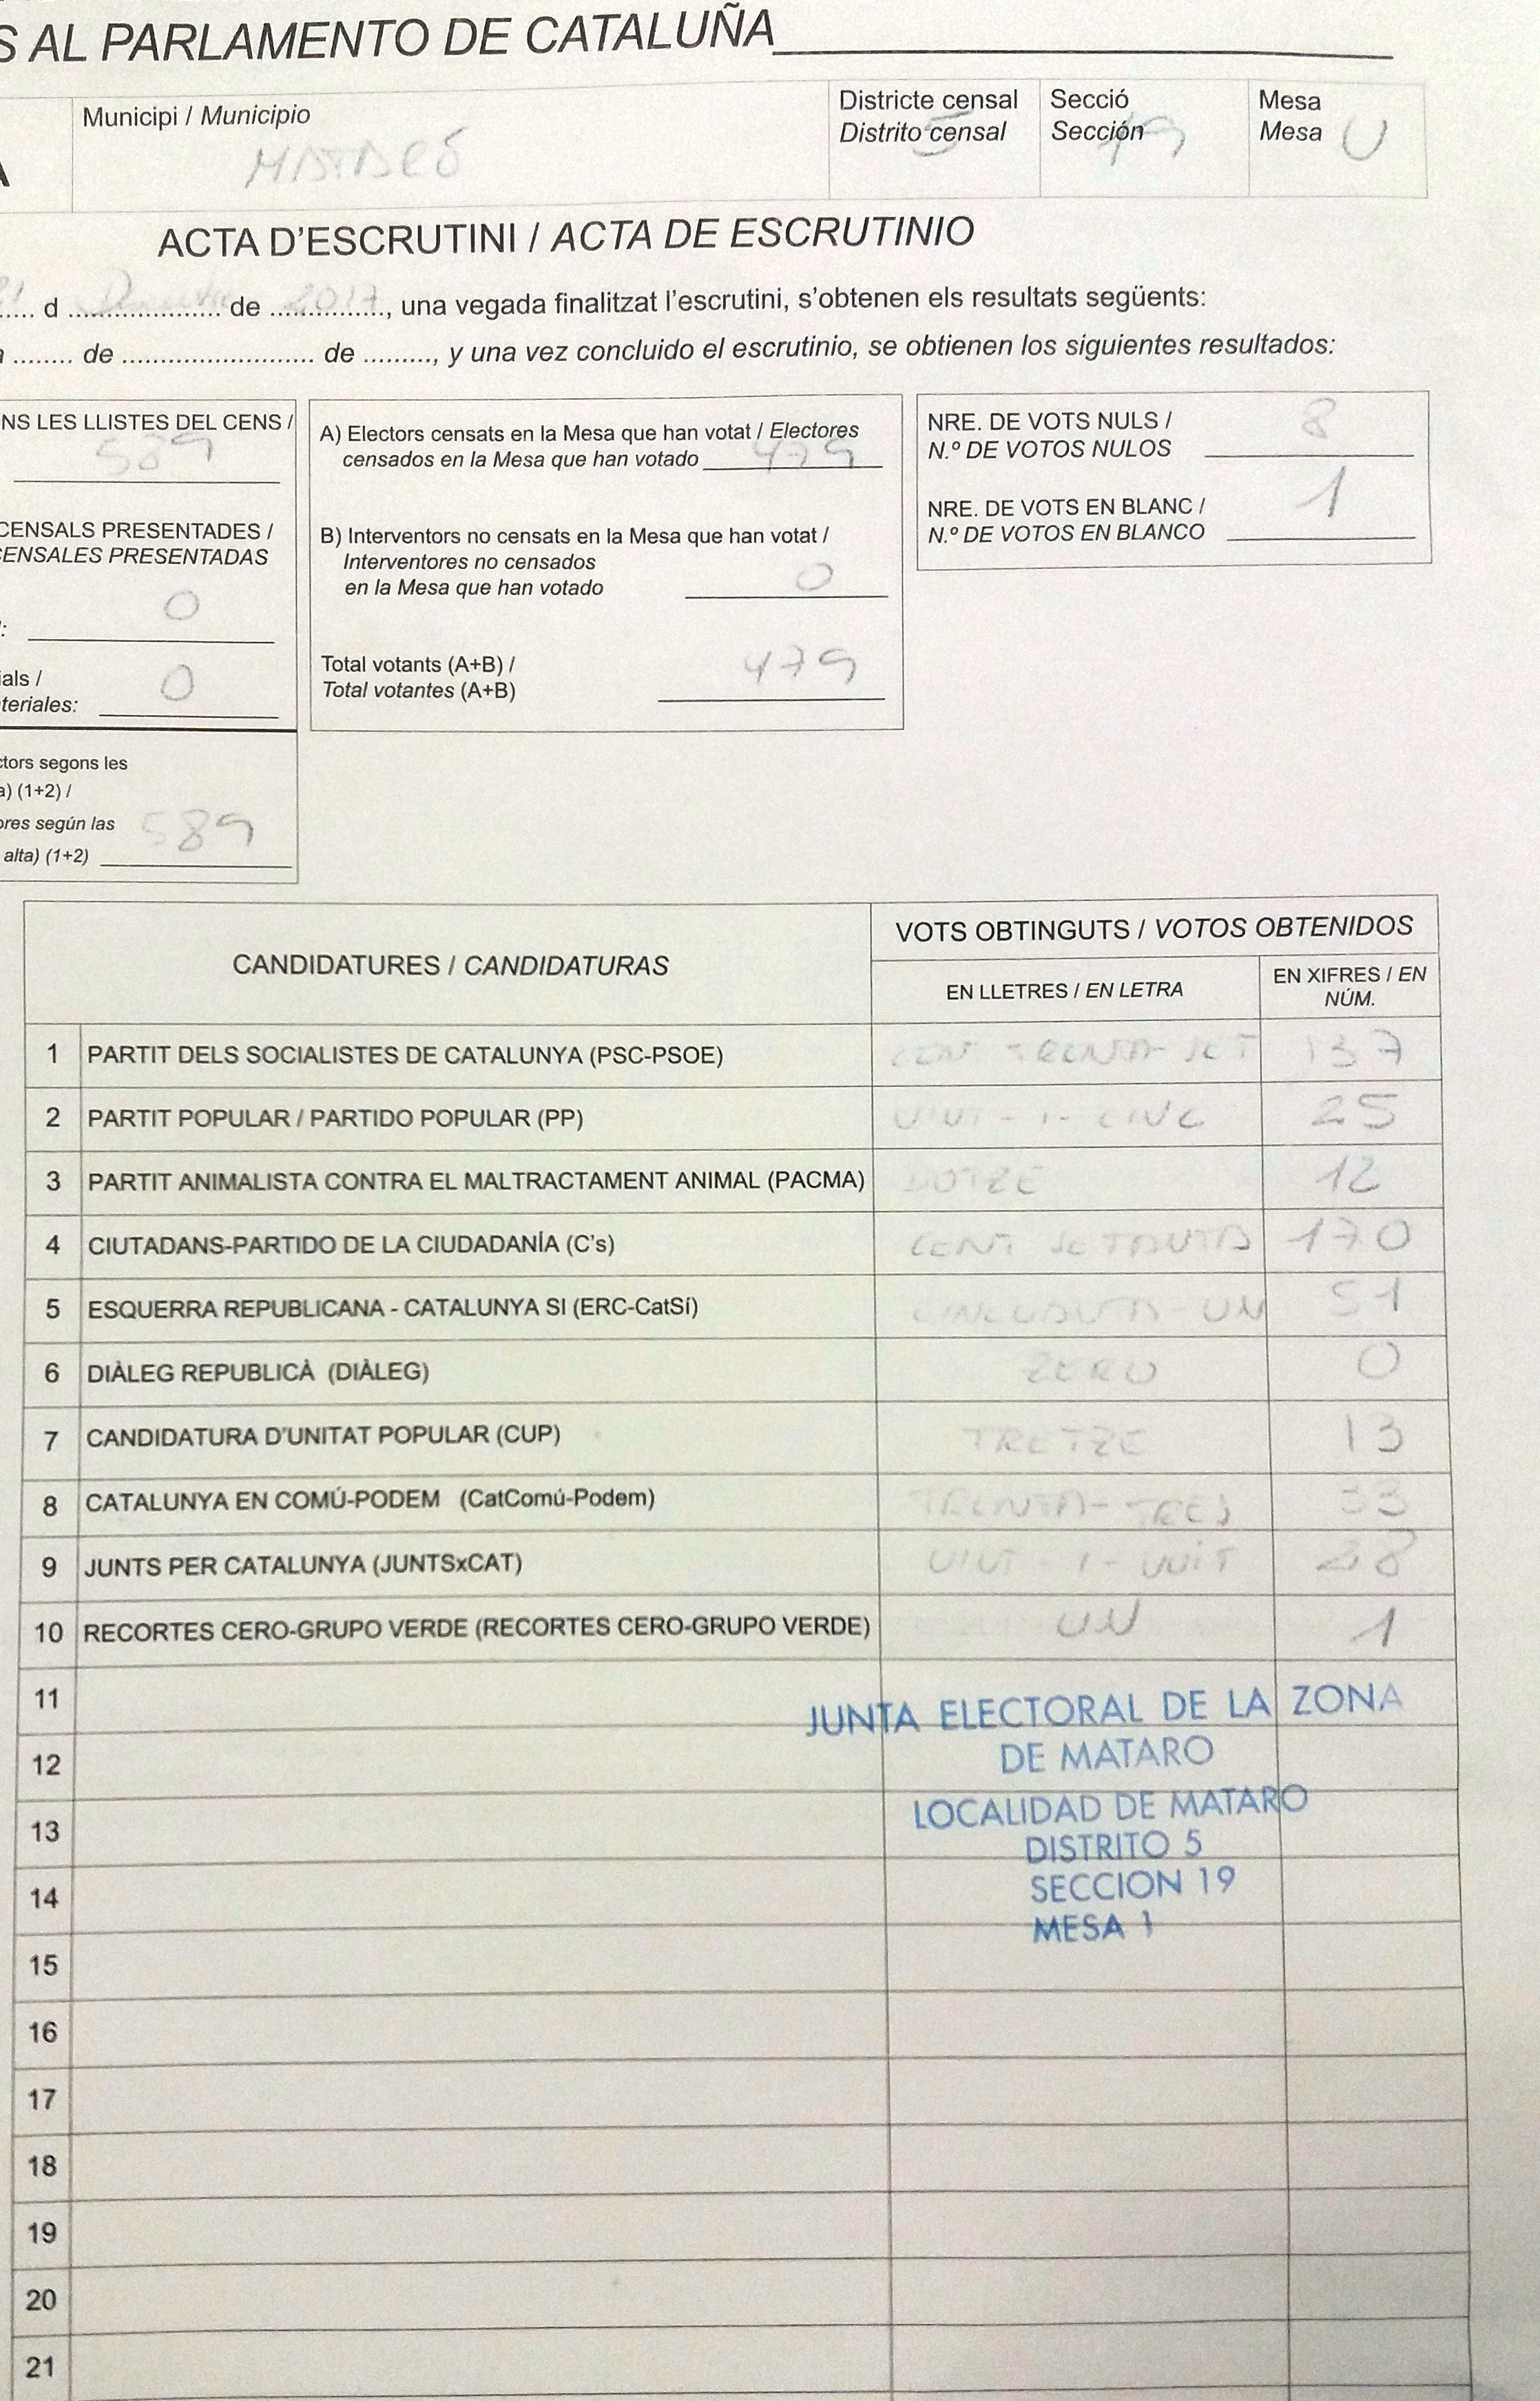 S AL PARLAMENTO DE CATALUÑA
Municipi / Municipio
MATARÓ
Districte censal
Distrito censal 5
Secció
Sección 19
Mesa
Mesa U
A
ACTA D'ESCRUTINI / ACTA DE ESCRUTINIO
21 d Desembre de 2017, una vegada finalitzat l'escrutini, s'obtenen els resultats següents:
........ de ............................ de ........., y una vez concluido el escrutinio, se obtienen los siguientes resultados:
NS LES LLISTES DEL CENS /
589
CENSALS PRESENTADES /
ENSALES PRESENTADAS
: 0
ials /
teriales: 0
ctors segons les
a) (1+2) /
ores según las
alta) (1+2) 589
A) Electors censats en la Mesa que han votat / Electores
censados en la Mesa que han votado 479
B) Interventors no censats en la Mesa que han votat /
Interventores no censados
en la Mesa que han votado 0
Total votants (A+B) /
Total votantes (A+B) 479
NRE. DE VOTS NULS /
N.º DE VOTOS NULOS 8
NRE. DE VOTS EN BLANC /
N.º DE VOTOS EN BLANCO 1
CANDIDATURES / CANDIDATURAS
VOTS OBTINGUTS / VOTOS OBTENIDOS
EN LLETRES / EN LETRA
EN XIFRES / EN
NÚM.
1 PARTIT DELS SOCIALISTES DE CATALUNYA (PSC-PSOE) CENT TRENTA-SET 137
2 PARTIT POPULAR / PARTIDO POPULAR (PP) VINT-I-CINC 25
3 PARTIT ANIMALISTA CONTRA EL MALTRACTAMENT ANIMAL (PACMA) DOTZE 12
4 CIUTADANS-PARTIDO DE LA CIUDADANÍA (C's) CENT SETANTA 170
5 ESQUERRA REPUBLICANA - CATALUNYA SI (ERC-CatSí) CINCUANTA UN 51
6 DIÀLEG REPUBLICÀ (DIÀLEG) ZERO 0
7 CANDIDATURA D'UNITAT POPULAR (CUP) TRETZE 13
8 CATALUNYA EN COMÚ-PODEM (CatComú-Podem) TRENTA-TRES 33
9 JUNTS PER CATALUNYA (JUNTSxCAT) VINT-I-VUIT 28
10 RECORTES CERO-GRUPO VERDE (RECORTES CERO-GRUPO VERDE) UN 1
11
JUNTA ELECTORAL DE LA ZONA
12
DE MATARO
LOCALIDAD DE MATARO
13
DISTRITO 5
SECCION 19
14
MESA 1
15
16
17
18
19
20
21